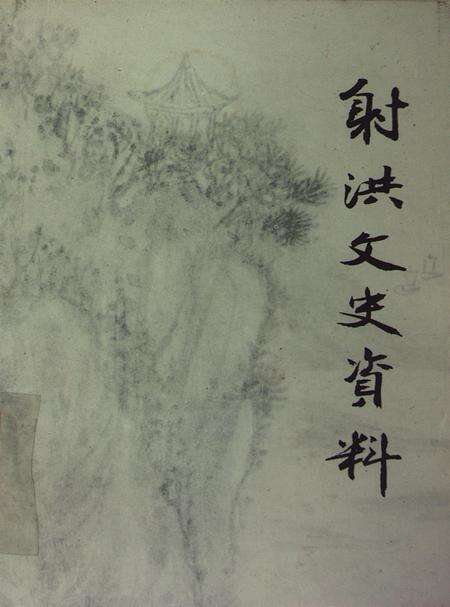 射洪文史資料